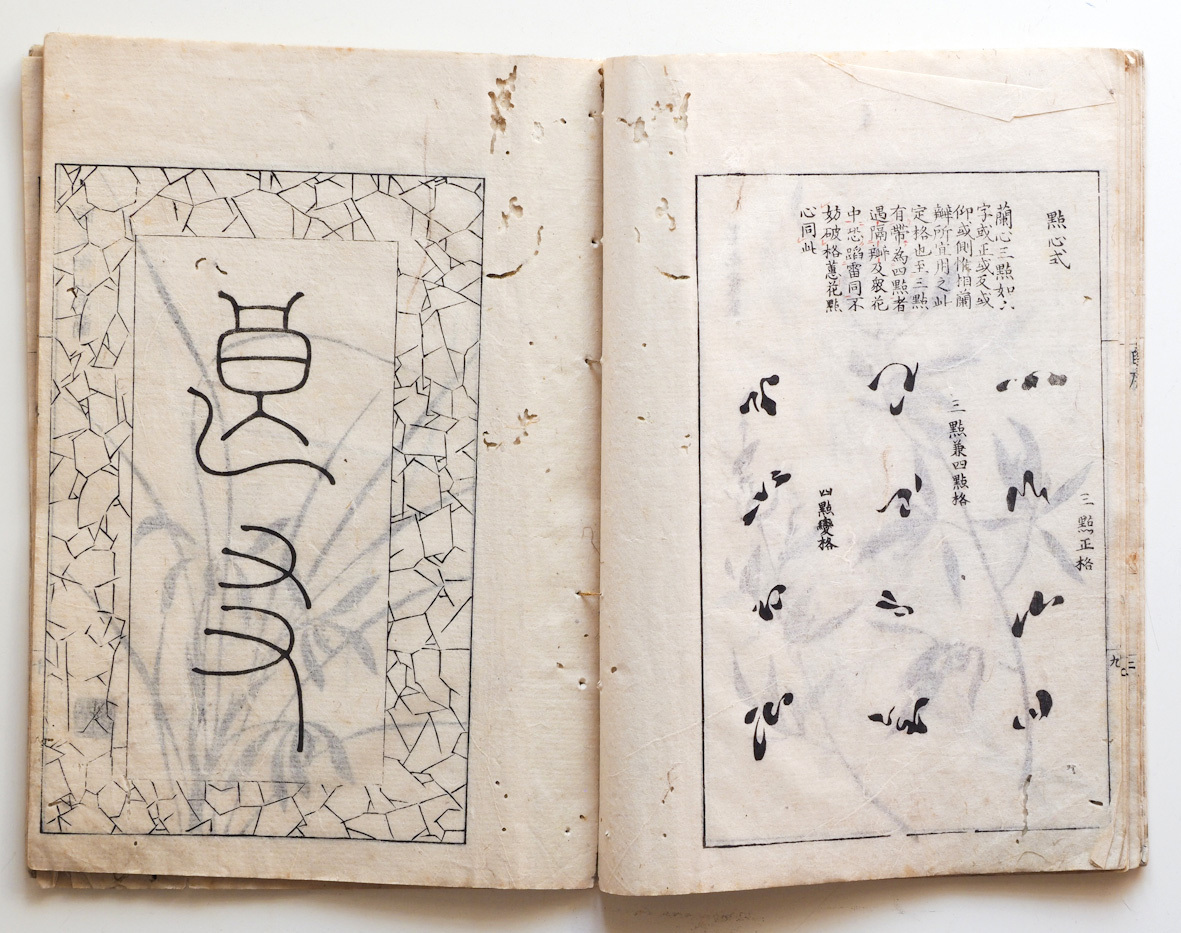 點心式
蘭心三點如
字或正或反或
仰或側惟相蘭
瓣所宜用之此
定格也至三點
有帶為四點者
遇隔瓣及眾花
中恐蹈雷同不
妨破格蕙花點
心同此
三點正格
三點兼四點格
四點變格